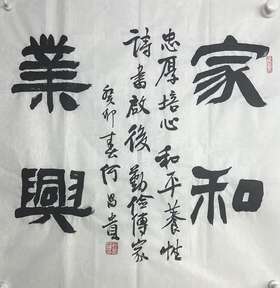 家和
忠厚培心 和平養性
詩書啟後 勤儉傳家
癸卯春何昌貴
業興